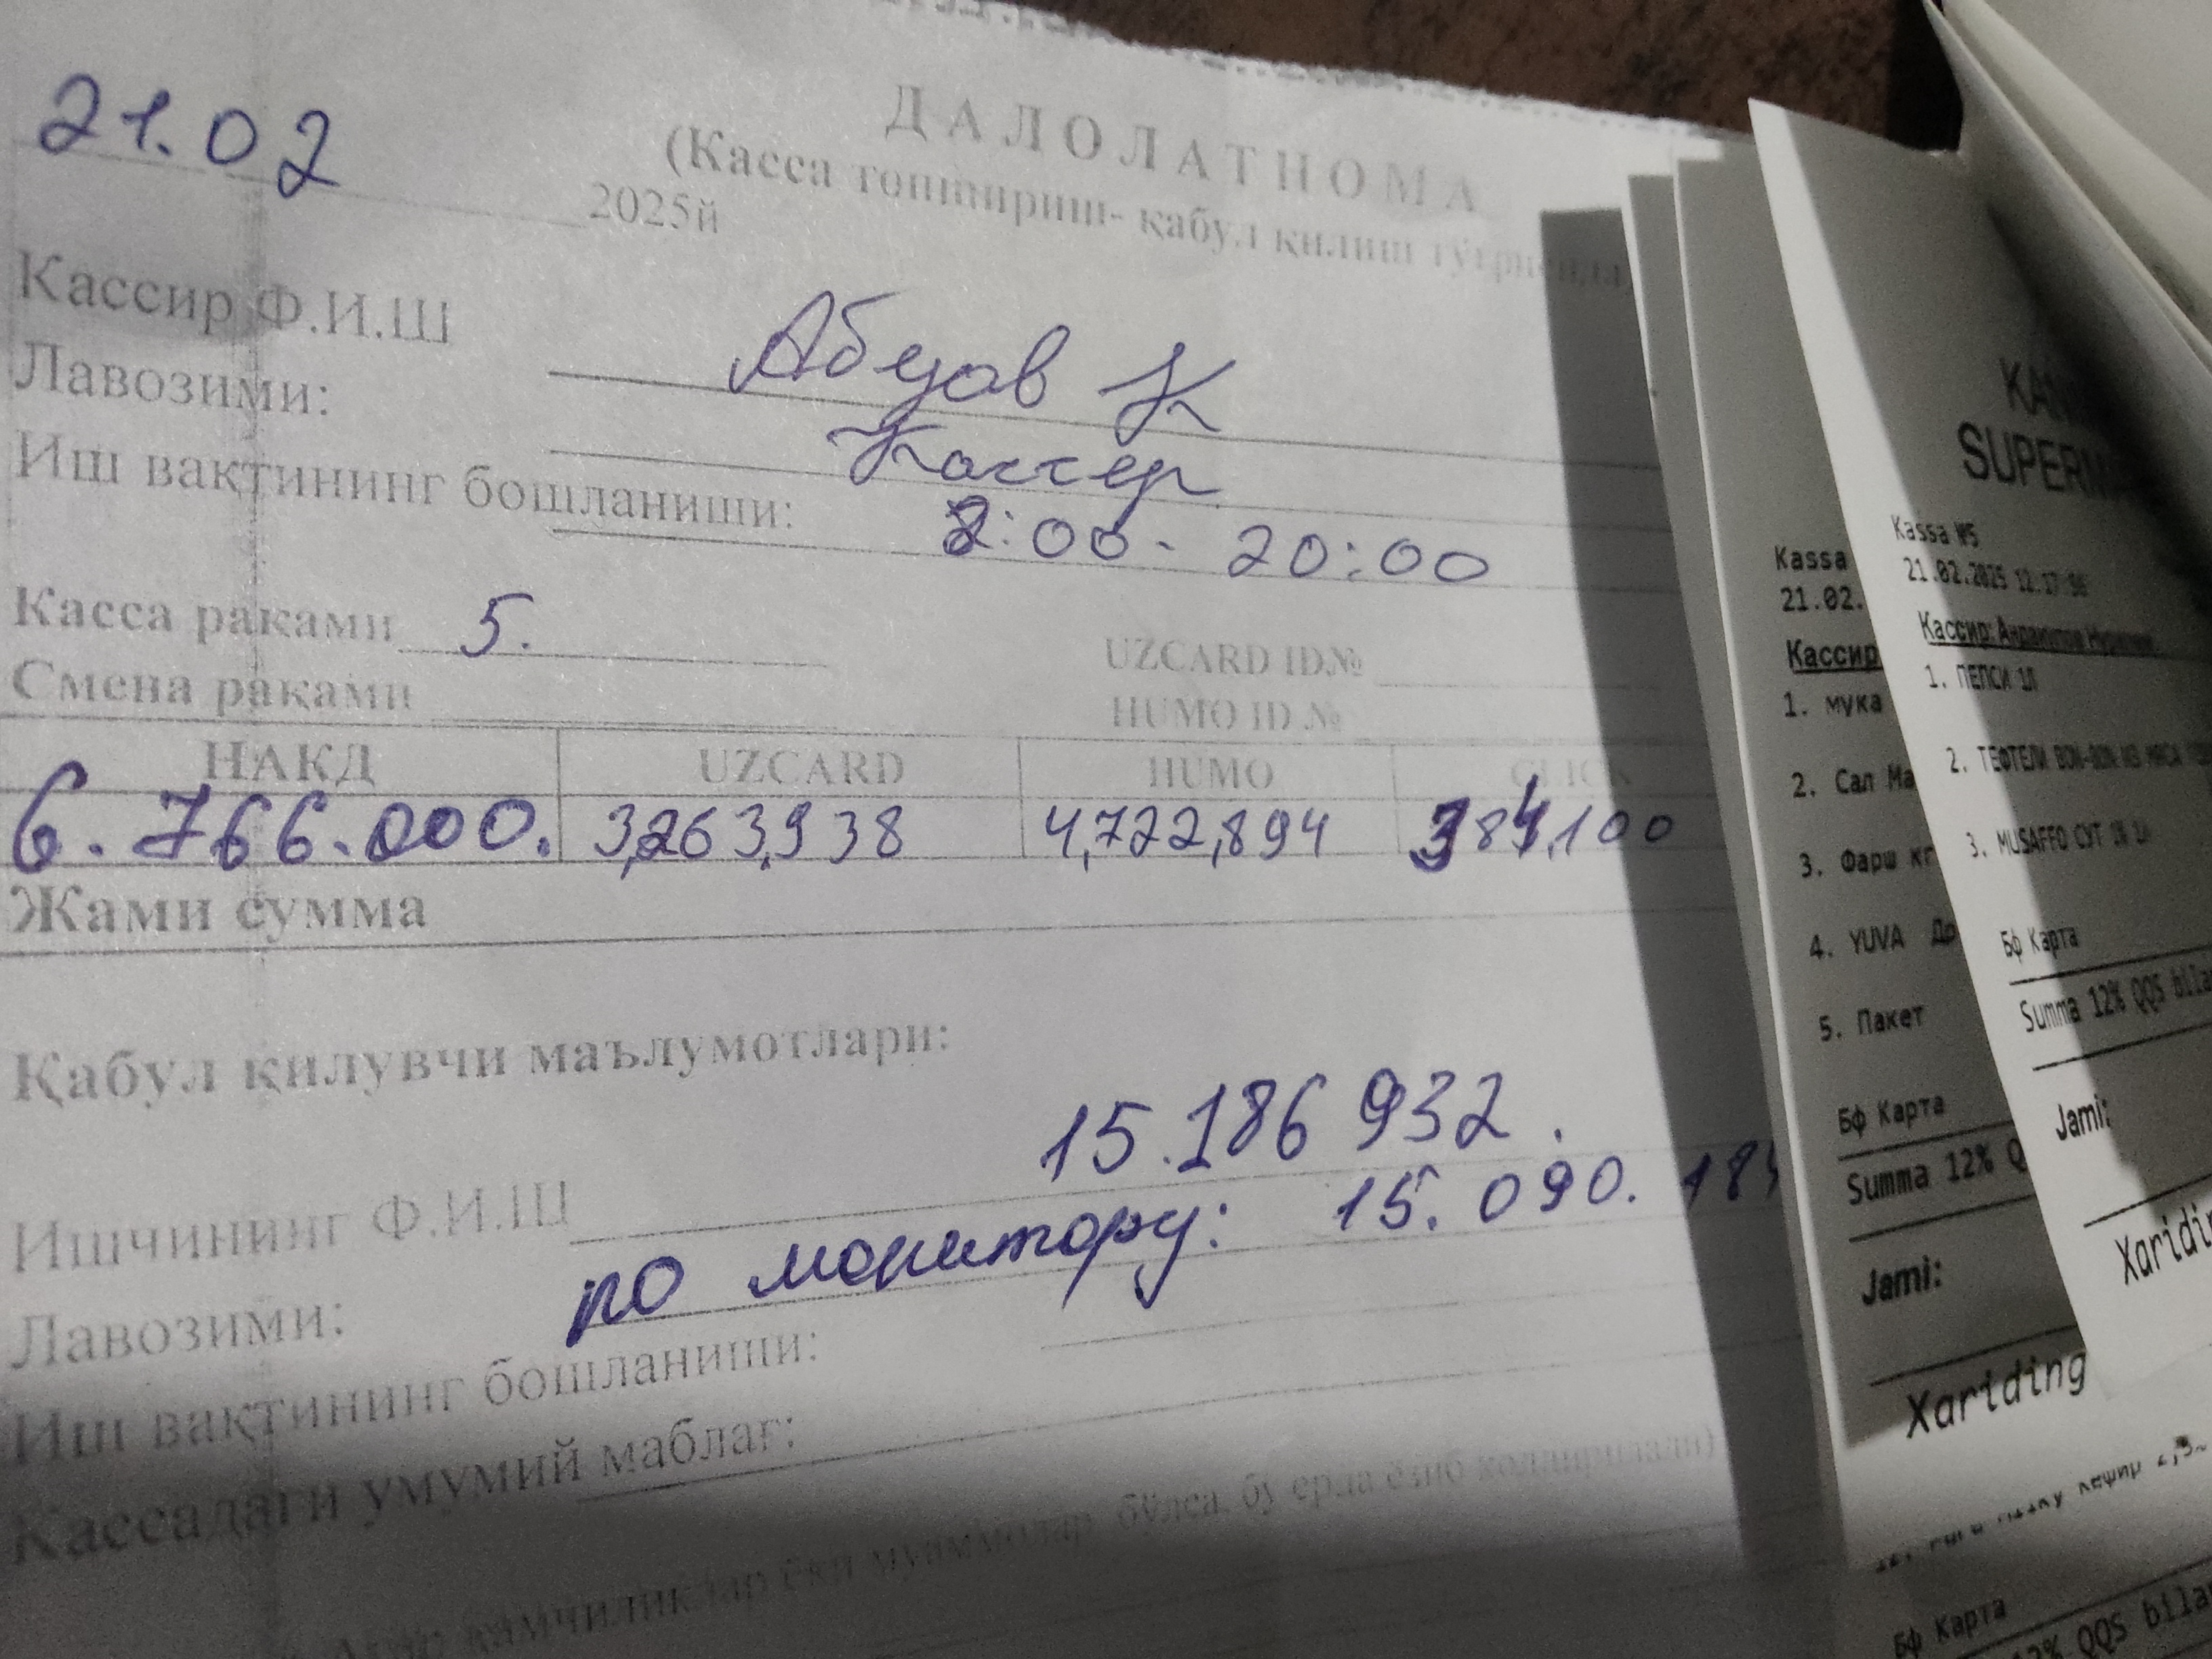 21.02 2025й
ДАЛОЛАТНОМА
(Касса топшириш- қабул қилиш тўғрисида)
Кассир Ф.И.Ш Абуов К
Лавозими: Кассер
Иш вақтининг бошланиши: 8:00 - 20:00
Касса рақами 5.
Смена рақами
UZCARD ID№
HUMO ID №
НАКД UZCARD HUMO CLICK
6.766.000. 3,263,938 4,722,894 384,100
Жами сумма
Қабул қилувчи маълумотлари:
15.186 932.
Ишчининг Ф.И.Ш
по монитору: 15.090.184
Лавозими:
Иш вақтининг бошланиши:
Кассадаги умумий маблағ:
камчиликлар ёки муаммолар бўлса, бу ерда ёзиб қолдирилади)
Kassa
21.02.
Кассир
1. мука
2. Сал Ма
3. Фарш кг
4. YUVA До
5. Пакет
Бф Карта
Summa 12% Q
Jami:
Xariding
Бф Карта
12% QQS bila
KAN
SUPERM
Kassa №5
21.02.2025 12:17
Кассир:
1. ПЕПСИ 1Л
2. ТЕФТЕЛИ BON-BON ИЗ МЯСА
3. MUSAFFO СУТ
Бф Карта
Summa 12% QQS bila
Jami:
Xaridi